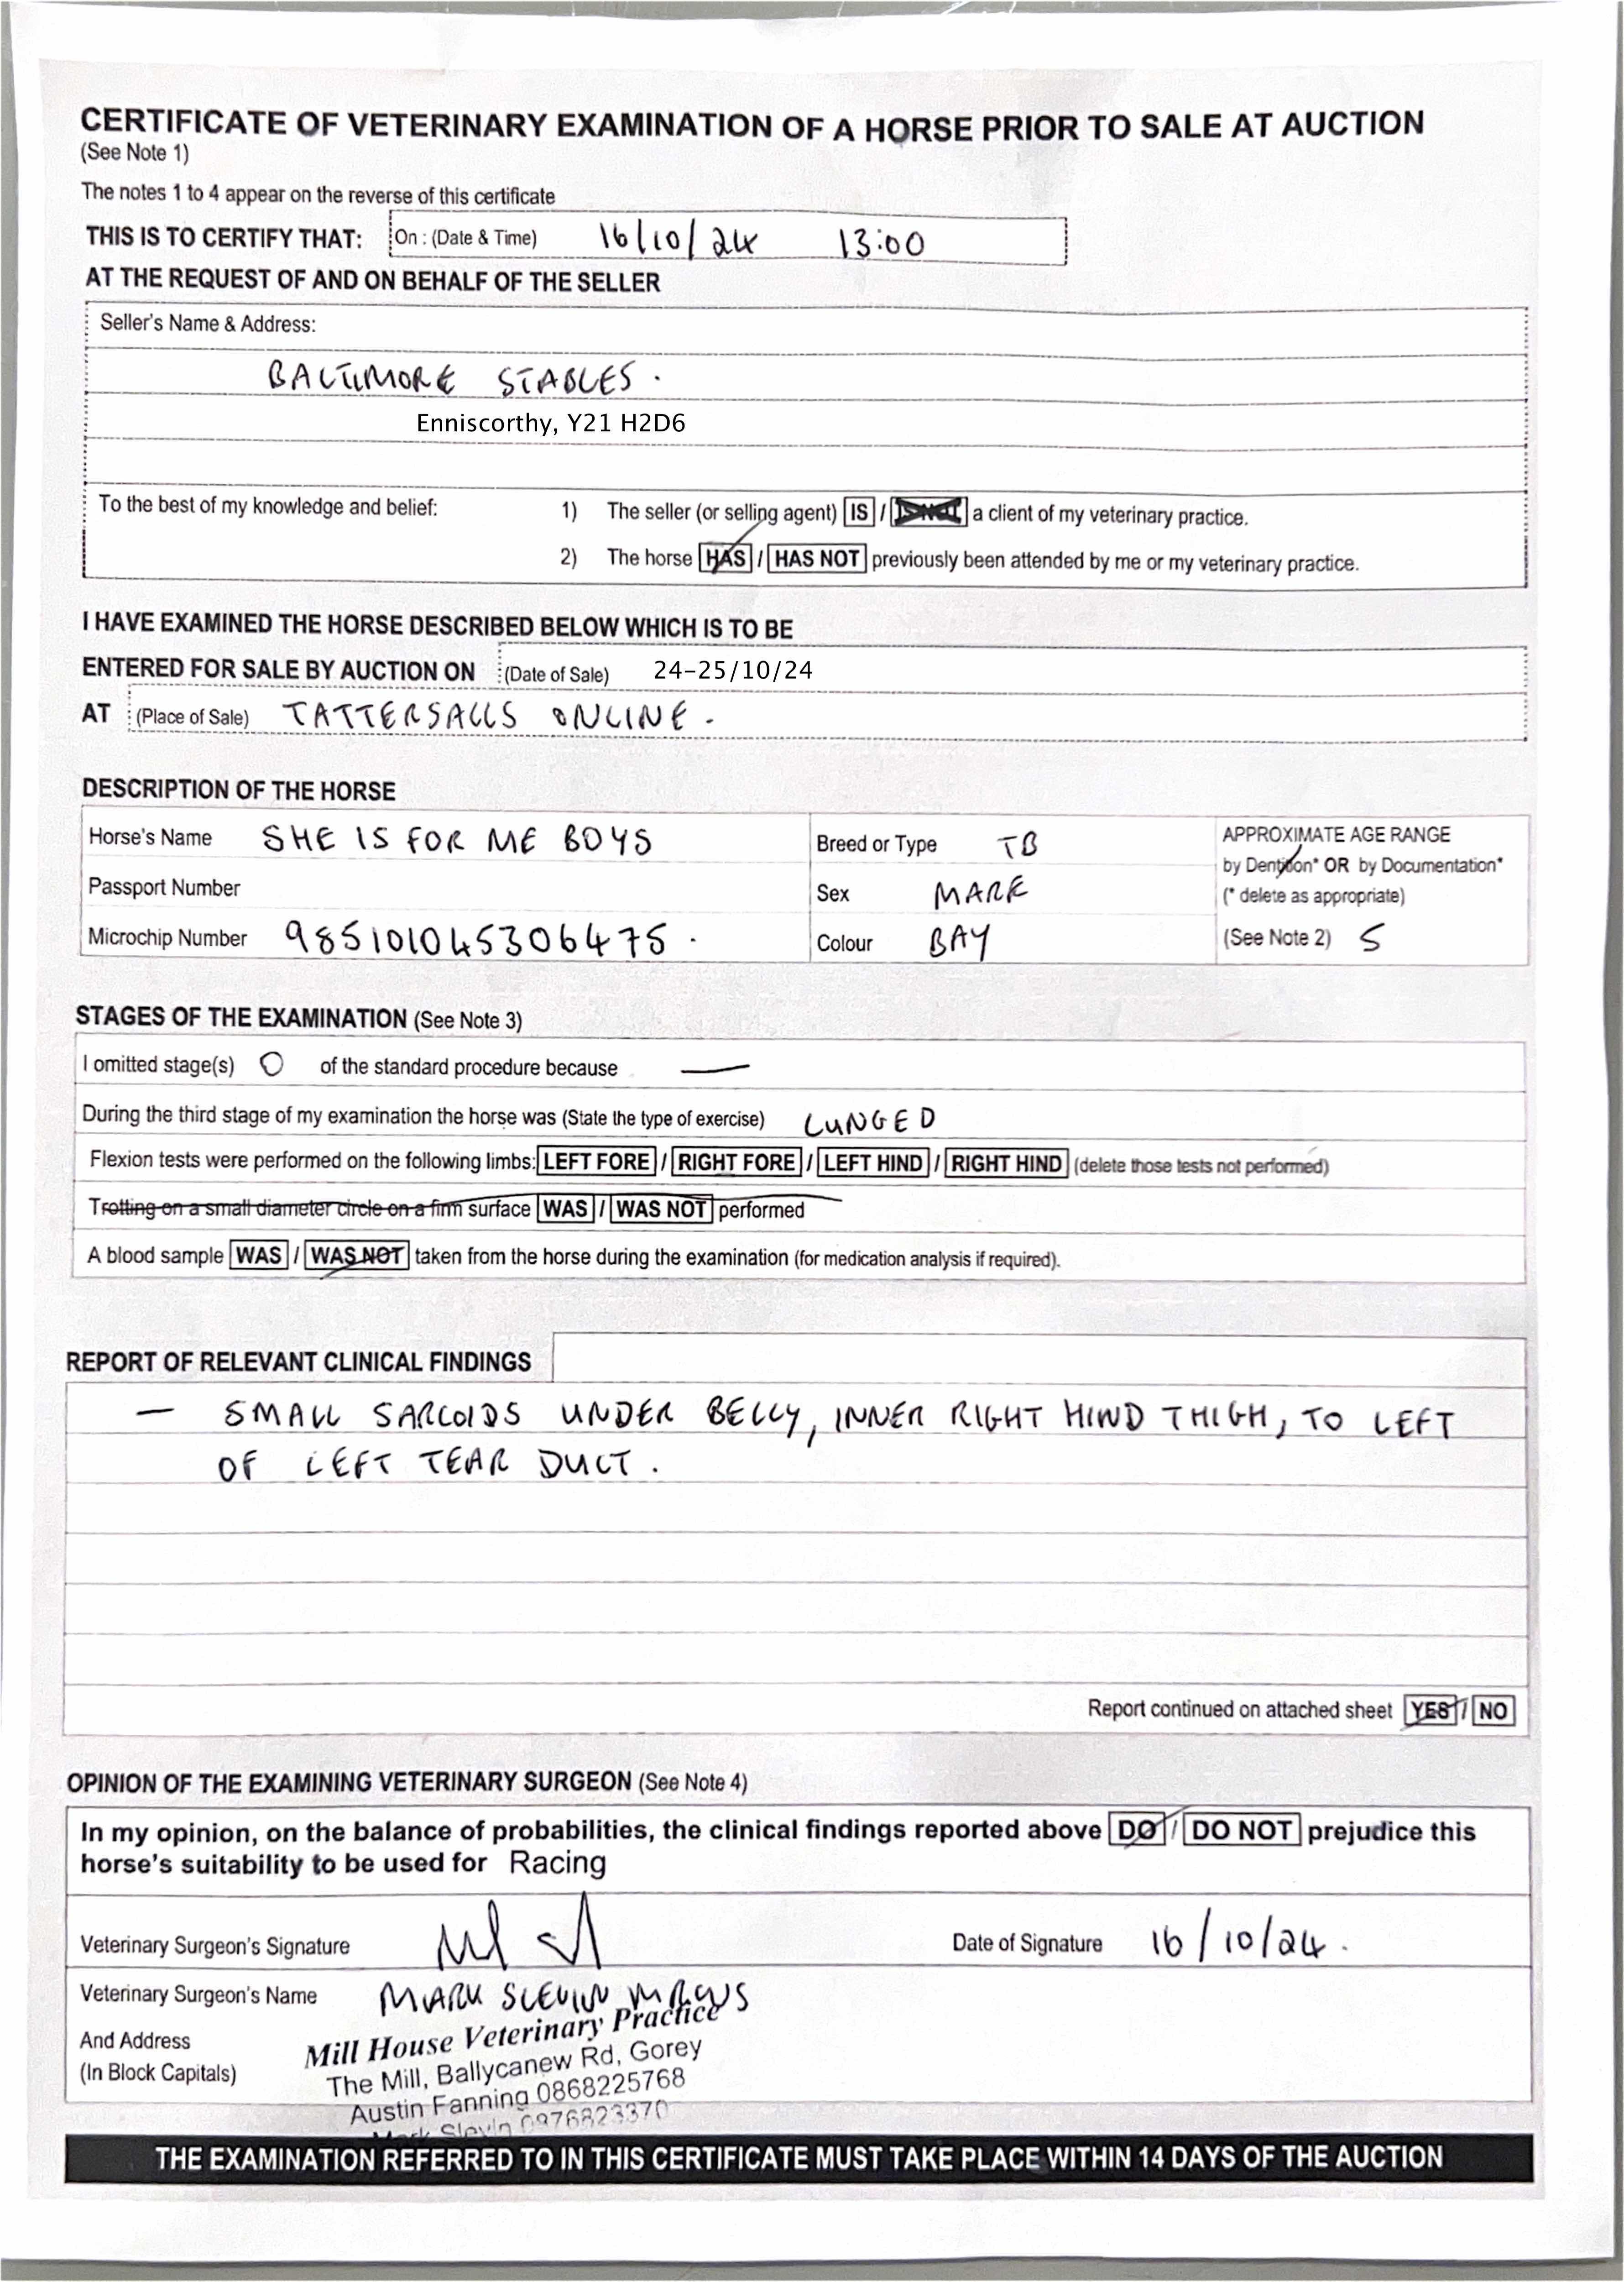 CERTIFICATE OF VETERINARY EXAMINATION OF A HORSE PRIOR TO SALE AT AUCTION
(See Note 1)
The notes 1 to 4 appear on the reverse of this certificate
THIS IS TO CERTIFY THAT: On : (Date & Time) 16/10/24 13:00
AT THE REQUEST OF AND ON BEHALF OF THE SELLER
Seller's Name & Address:
BALTIMORE STABLES.
Enniscorthy, Y21 H2D6
To the best of my knowledge and belief: 1) The seller (or selling agent) IS / IS NOT a client of my veterinary practice.
2) The horse HAS / HAS NOT previously been attended by me or my veterinary practice.
I HAVE EXAMINED THE HORSE DESCRIBED BELOW WHICH IS TO BE
ENTERED FOR SALE BY AUCTION ON (Date of Sale) 24-25/10/24
AT (Place of Sale) TATTERSALLS ONLINE.
DESCRIPTION OF THE HORSE
Horse's Name SHE IS FOR ME BOYS Breed or Type TB APPROXIMATE AGE RANGE
by Dentition* OR by Documentation*
Passport Number Sex MARE (* delete as appropriate)
Microchip Number 985101045306475. Colour BAY (See Note 2) 5
STAGES OF THE EXAMINATION (See Note 3)
I omitted stage(s) 0 of the standard procedure because —
During the third stage of my examination the horse was (State the type of exercise) LUNGED
Flexion tests were performed on the following limbs: LEFT FORE / RIGHT FORE / LEFT HIND / RIGHT HIND (delete those tests not performed)
Trotting on a small diameter circle on a firm surface WAS / WAS NOT performed
A blood sample WAS / WAS NOT taken from the horse during the examination (for medication analysis if required).
REPORT OF RELEVANT CLINICAL FINDINGS
— SMALL SARCOIDS UNDER BELLY, INNER RIGHT HIND THIGH, TO LEFT
OF LEFT TEAR DUCT.
Report continued on attached sheet YES / NO
OPINION OF THE EXAMINING VETERINARY SURGEON (See Note 4)
In my opinion, on the balance of probabilities, the clinical findings reported above DO / DO NOT prejudice this
horse's suitability to be used for Racing
Veterinary Surgeon's Signature Date of Signature 16/10/24.
Veterinary Surgeon's Name MARK SLEVIN MRCVS
And Address
(In Block Capitals)
Mill House Veterinary Practice
The Mill, Ballycanew Rd, Gorey
Austin Fanning 0868225768
Mark Slevin 0976823370
THE EXAMINATION REFERRED TO IN THIS CERTIFICATE MUST TAKE PLACE WITHIN 14 DAYS OF THE AUCTION